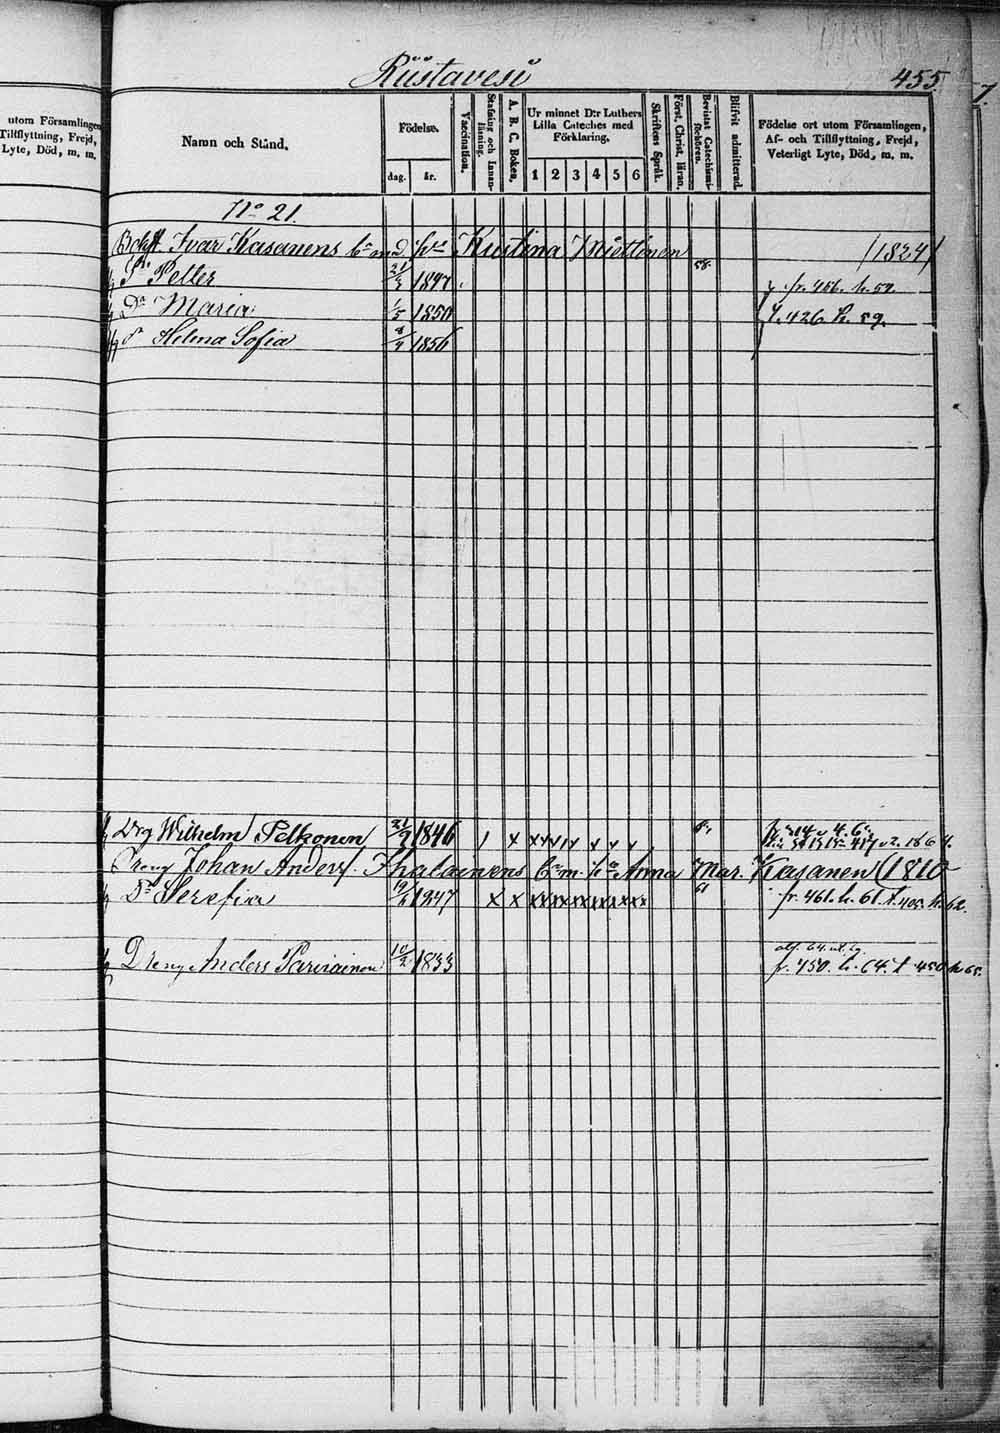 Riistavesi 455
7.
utom Församlingen
Tillflyttning, Frejd,
Lyte, Död, m. m.
Namn och Stånd.
Födelse.
dag. år.
Vaccination.
Stafning och Innan-läsning.
A. B. C. Boken.
Ur minnet D:r Luthers
Lilla Cateches med
Förklaring.
1 2 3 4 5 6
Skriftens Språk.
Först. Christ. läran.
Bevistat Catechismi-förhören.
Blifvit admitterad.
Födelse ort utom Församlingen,
Af- och Tillflyttning, Frejd,
Veterligt Lyte, Död, m. m.
No 21.
Ivar Kasanens b:n m d h:u Kristina /1824/
S:n Petter 21/3 1847 58 fr. 456. h. 59
D:r Maria 1/5 1850 426 h. 59.
d:r Helena Sofia 8/4 1856
Drg Wilhelm Pelkonen 21/9 1846 x x
Dreng Johan Anders. Ihalainens b:n m. h:u Anna Mar. Kasanen (1810
D:r Serefia 19/6 1847 x x 61 fr. 461. h. 61. t. 405. h. 62.
Dreng Anders Parviainen 10/2 1833 fr. 450. h. 64. t 450 h 65.